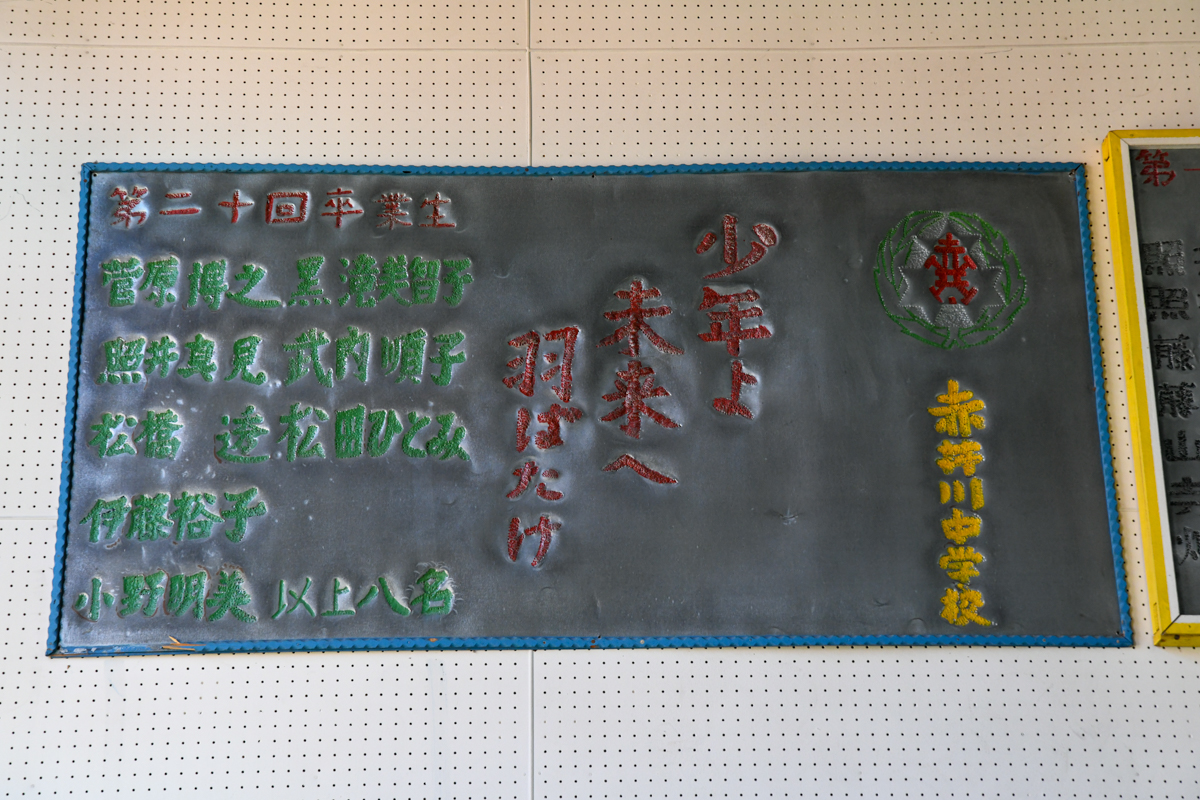 赤井川中学校
少年よ
未来へ
羽ばたけ
第二十回卒業生
菅原博之 黒滝美智子
照井真見 武内順子
松橋 達 松田ひとみ
伊藤裕子
小野明美 以上八名
第一